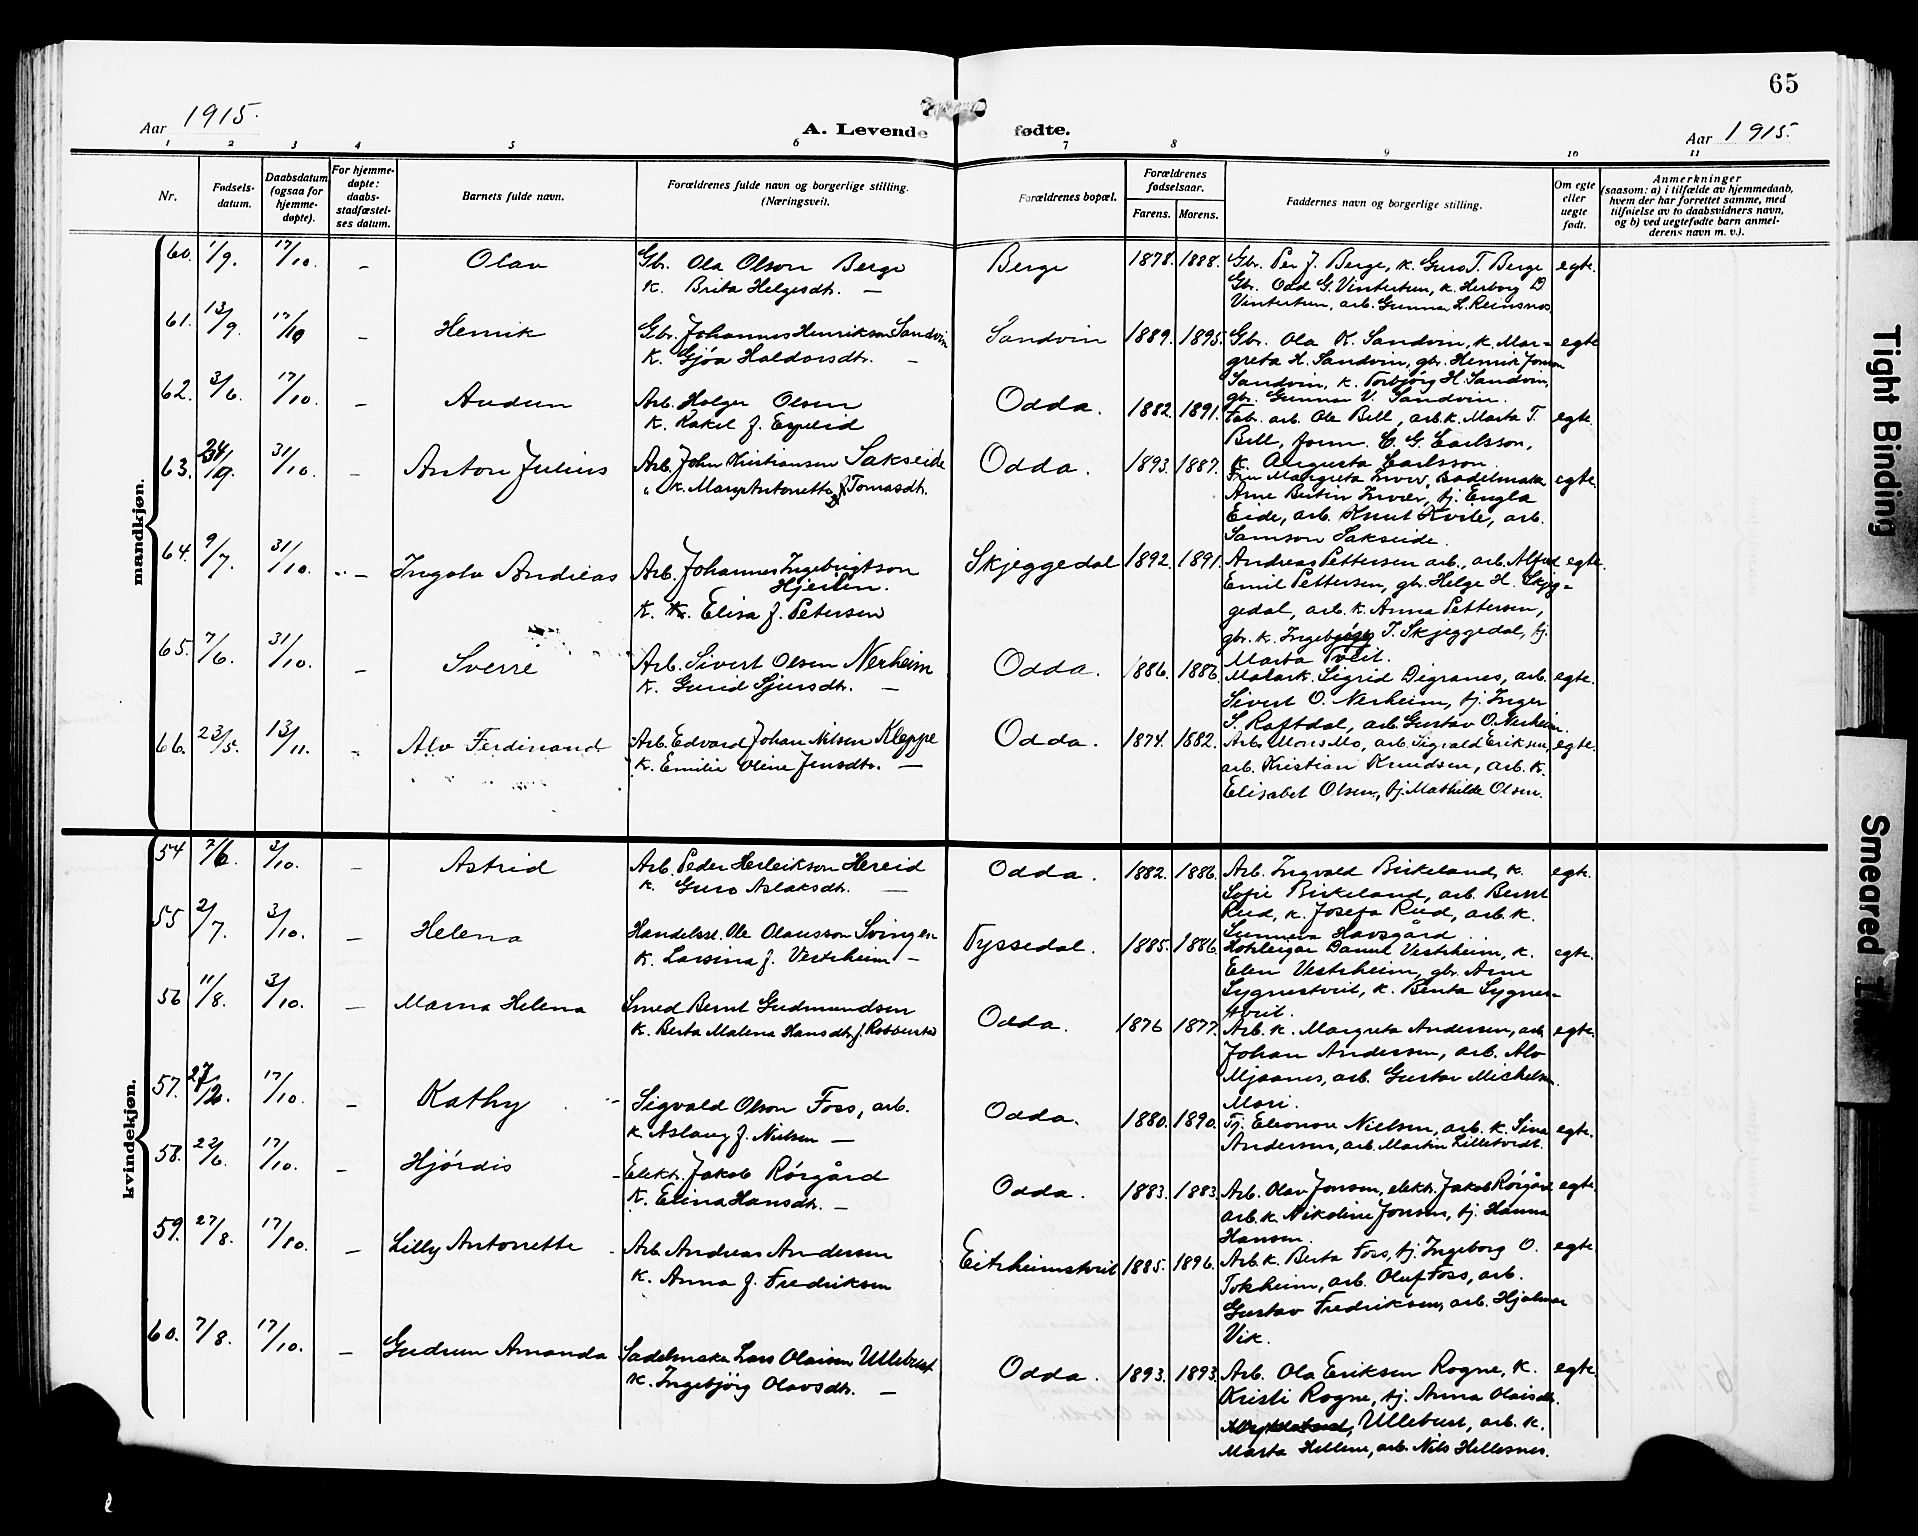 65
Aar 1915.
A. Levende fødte.
Aar 1915.
1 2 3 4 5 6 7 8 9 10 11
Nr.
Fødsels-
datum.
Daabsdatum
(ogsaa for
hjemme-
døpte).
For hjemme-
døpte:
daabs-
stadfæstel-
ses datum.
Barnets fulde navn.
Forældrenes fulde navn og borgerlige stilling.
(Næringsvei).
Forældrenes bopæl.
Forældrenes
fødselsaar.
Farens. Morens.
Faddernes navn og borgerlige stilling.
Om egte
eller
uegte
født.
Anmerkninger
(saasom: a) i tilfælde av hjemmedaab,
hvem der har forrettet samme, med
tilføielse av to daabsvidners navn,
og b) ved uegtefødte barn anmel-
derens navn m. v.).
mandkjøn.
60. 1/9. 17/10. – Olav Gbr. Ola Olson Berge Berge 1878. 1888. Gbr. Per J. Berge, k. Guro T. Berge egte.
k. Brita Helgesdtr. — Gbr. Odd G. Vintertun, k. Herborg D
Vintertun, arb. Gunnar L. Reinsnos.
61. 13/9. 17/10 – Henrik Gbr. Johannes Henrikson Sandvin Sandvin 1889. 1895. Gbr. Ola K. Sandvin, k. Mar- egte
k. Gjóa Haldorsdtr. – greta H. Sandvin, gbr. Henrik Jonson
Sandvin, k. Torbjörg H. Sandvin,
gbr. Gunnar V. Sandvin.
62. 3/6. 17/10. – Audun Arb. Holger Olsen Odda. 1882. 1891. Fabr. arb. Ole Bell, arb. k. Marta T. egte.
k. Rakel f. Espelid Bell, form. C. G. Carlsson,
k. Augusta Carlsson.
63. 31/10. – Anton Julius Arb. John Kristiansen Sakseide Odda. 1893. 1887. Fru Margreta Invær, Sadelmaker egte.
" k. Mary Antonette f. Tomasdtr. Arne Bertin Invær, tj. Engla
Eide, arb. Knut Kvile, arb.
Samson Sakseide.
64. 9/7. 31/10. – Ingolv Andreas Arb. Johannes Ingebrigtson Skjeggedal 1892. 1891. Andreas Pettersen arb., arb. Alfred egte.
Hjeilen. Emil Pettersen, gbr. Helge H. Skjeg-
k. Elisa f. Petersen gedal, arb. k. Anna Pettersen,
gbr. k. Ingebjørg T. Skjeggedal, tj.
Marta Tveit.
65. 7/6. 31/10. – Sverre Arb. Sivert Olsen Nerheim Odda. 1886. 1886. Sigrid Digranes, arb. egte.
k. Gurid Sjursdtr. — Sivert O. Nerheim, tj. Inger
S. Raftdal, arb. Gustav O. Nerheim.
66. 23/5. 13/11. – Alv Ferdinand Arb. Edvard Johan Nilsen Kleppe Odda. 1874. 1882. Arb. Mons Mo, arb. Sigvald Eriksen, egte.
k. Emilie Oline Jensdtr. — arb. Kristian Knudsen, arb. k.
Elisabet Olsen, tj. Mathilde Olsen.
kvindekjøn.
54 7/6. 3/10. – Astrid Arb. Peder Herleikson Hereid Odda. 1882. 1886. Arb. Ingvald Birkeland, k. egte.
k. Guro Aslaksdtr. — Sofie Birkeland, arb. Bernt
Rud, k. Josefa Rud, arb. k.
Sunneva Havsgård
55 2/7. 3/10. – Helena Handelsst. Ole Olausson Svingen Tyssedal. 1885. 1886. Hotleigar Daniel Vestrheim, k. egte.
k. Larsina f. Vestrheim – Elen Vestrheim, gbr. Arne
Lygnestveit, k. Berta Lygnes-
tveit.
56 11/8. 3/10. – Marna Helena Smed Bernt Gudmundsen Odda. 1876 1877. Arb. k. Margreta Andersen, arb. egte.
k. Berta Malena Hansdtr. f. Johan Andersen, arb. Alv
Mjaanes, arb. Gustav Michelsen.
Mari.
57. 17/10. – Kathy Sigvald Olson Foss, arb. Odda. 1880. 1890. Tj. Eleonore Nielsen, arb. k. Sina egte.
k. Aslaug f. Nielsen — Andersen, arb. Martin Lilletvedt.
58. 22/6. 17/10. – Hjördis Elektr. Jakob Rörgård Odda. 1883. 1883. Arb. Olav Jonsen, elektr. Jakob Rörgård egte.
k. Elina Hansdtr. — arb. k. Nikoline Jonsen, tj. Hanna
Hansen.
59. 27/8. 17/10. – Lilly Antonette Arb. Andreas Andersen Eitrheimstveit 1885. 1896. Arb. k. Berta Foss, tj. Ingeborg O. egte
k. Anna f. Fredriksen Tokheim, arb. Oluf Foss, arb.
Gustav Fredriksen, arb. Hjalmar
Vik.
60. 7/8. 17/10. – Gudrun Amanda Sadelmaker Lars Olaisen Ullebust Odda. 1893. 1893. Arb. Ola Eriksen Rogne, k. egte
k. Ingebjörg Olavsdtr. — Kristi Rogne, tj. Anna Olaisdtr.
Ullebust, arb. k.
Marta Hellene, arb. Nils Hellesnes.
Tight Binding
Smeared